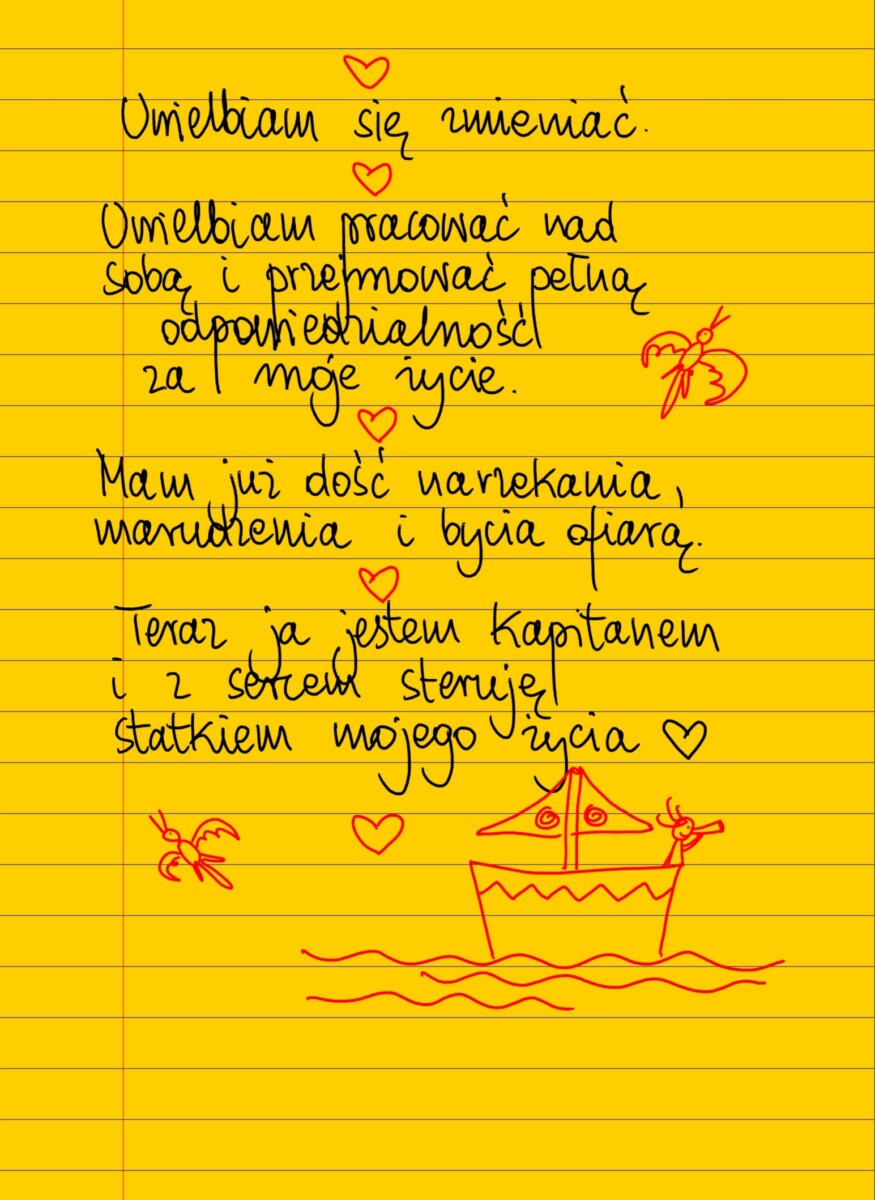 Uwielbiam się zmieniać.
Uwielbiam pracować nad
sobą i przejmować pełną
odpowiedzialność
za moje życie.
Mam już dość narzekania,
marudzenia i bycia ofiarą.
Teraz ja jestem kapitanem
i z sercem steruję
statkiem mojego życia ♡